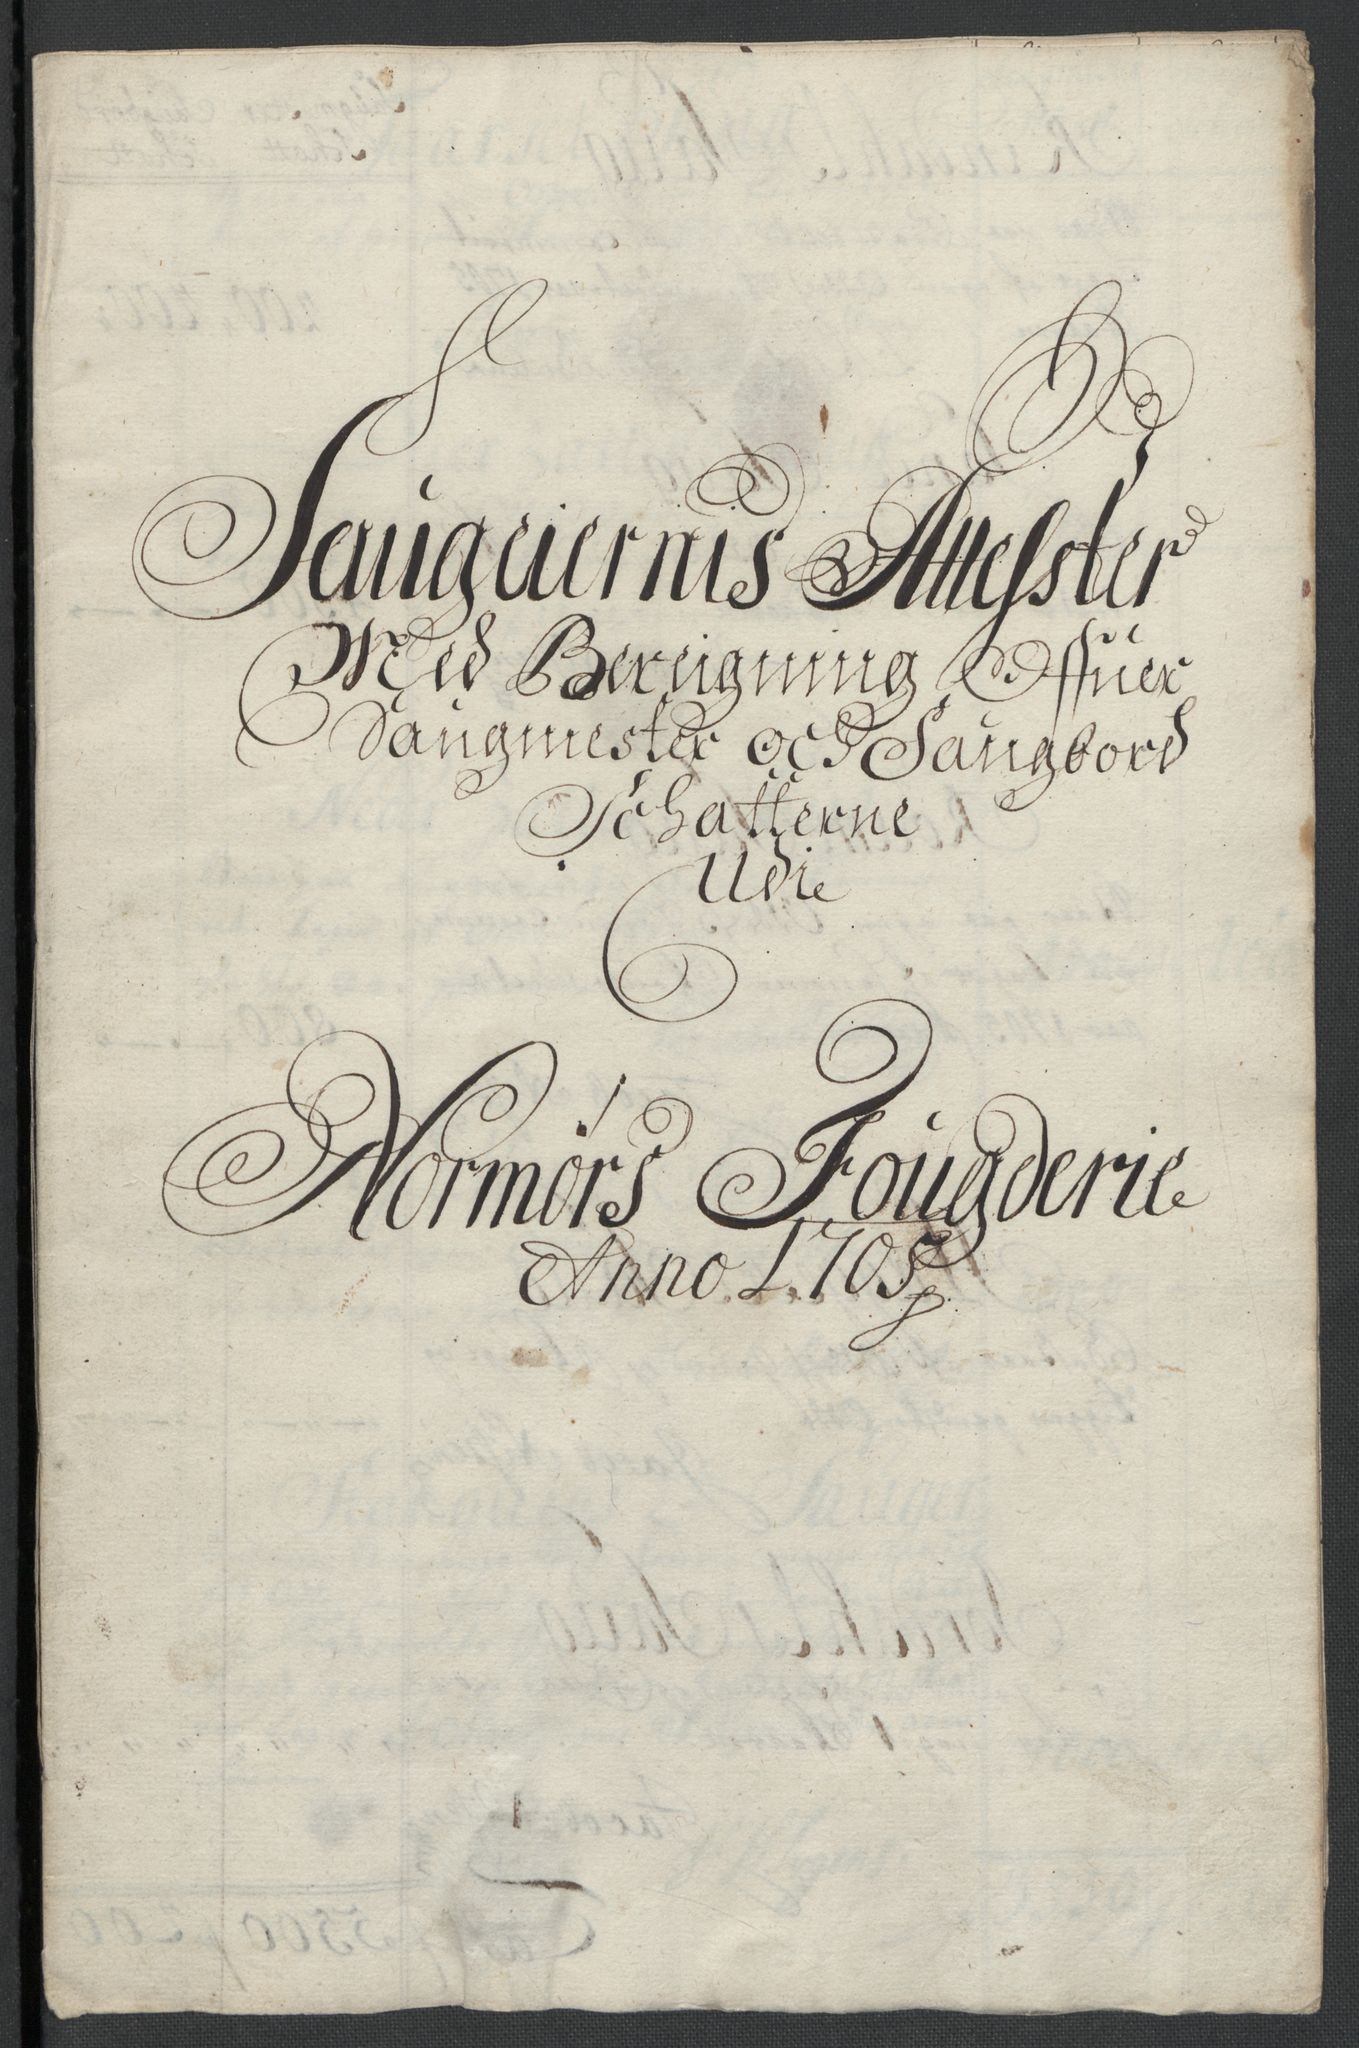 Saugeiernis Attester
Med Bereigning Offuer
Saugmester och Saugbord
Schatterne
Udi
Normørs Fougderie
Anno 1705